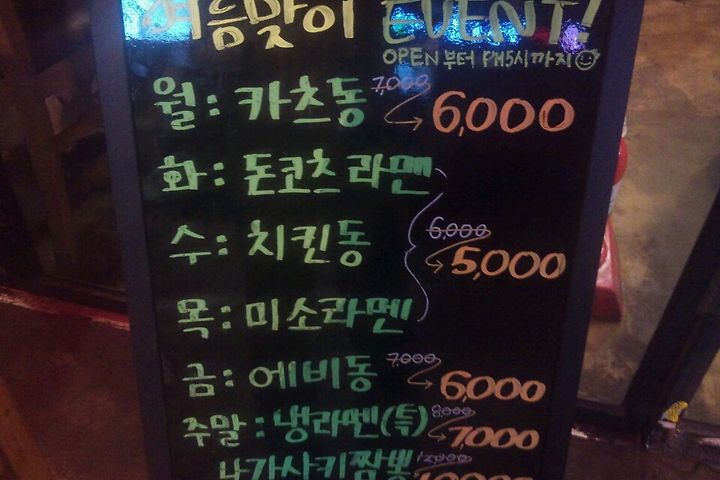 여름맞이 EVENT!
OPEN부터 PM5시까지
월: 카츠동 7,000 6,000
화: 돈코츠라멘
수: 치킨동 6,000 5,000
목: 미소라멘
금: 에비동 7,000 6,000
주말: 냉라멘(특) 8,000 7,000
나가사키짬뽕 12,000